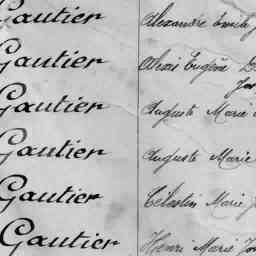 Gautier Alexandre Emile
Gautier Alexis Eugène
Gautier Auguste Marie
Gautier Auguste Marie
Gautier Célestin Marie
Gautier Henri Marie